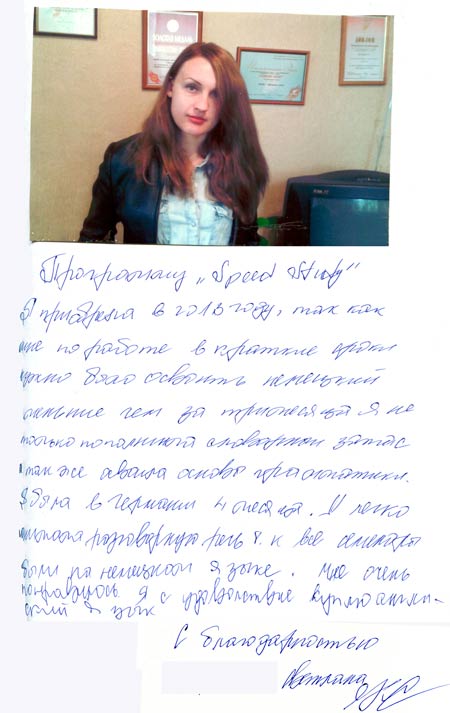 ЗОЛОТАЯ МЕДАЛЬ
ДИПЛОМ
Программу „Speed Study"
Я приобрела в 2013 году, так как
мне по работе в краткие сроки
нужно было освоить немецкий
меньше чем за три месяца я не
только пополнила словарный запас
и так же освоила основы грамматики.
Я была в Германии 4 месяца. И легко
разговорную речь т. к все семинары
были на немецком языке. Мне очень
понравилось я с удовольствие куплю англи-
ский язык
С благодарностью
Светлана